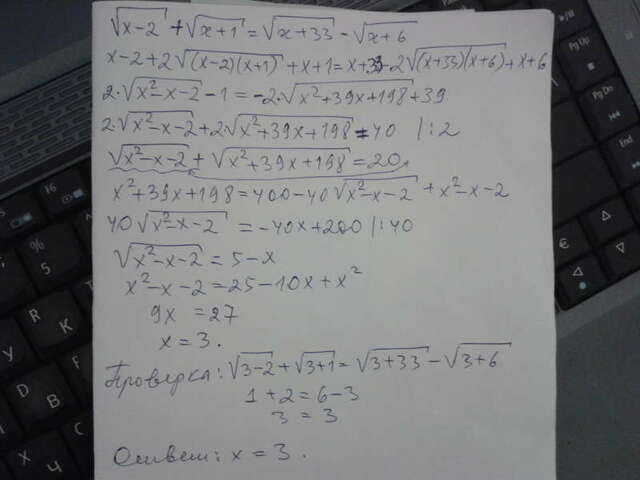 √(x-2) + √(x+1) = √(x+33) - √(x+6)
x-2+2√((x-2)(x+1)) + x+1 = x+33-2√((x+33)(x+6)) + x+6
2·√(x²-x-2) - 1 = -2·√(x²+39x+198) + 39
2·√(x²-x-2) + 2√(x²+39x+198) = 40 /:2
√(x²-x-2) + √(x²+39x+198) = 20
x²+39x+198 = 400-40√(x²-x-2) + x²-x-2
40√(x²-x-2) = -40x+200 /:40
√(x²-x-2) = 5-x
x²-x-2 = 25-10x+x²
9x = 27
x = 3.
Проверка: √(3-2) + √(3+1) = √(3+33) - √(3+6)
1+2 = 6-3
3 = 3
Ответ: x = 3.
PgUp
PgDn
End